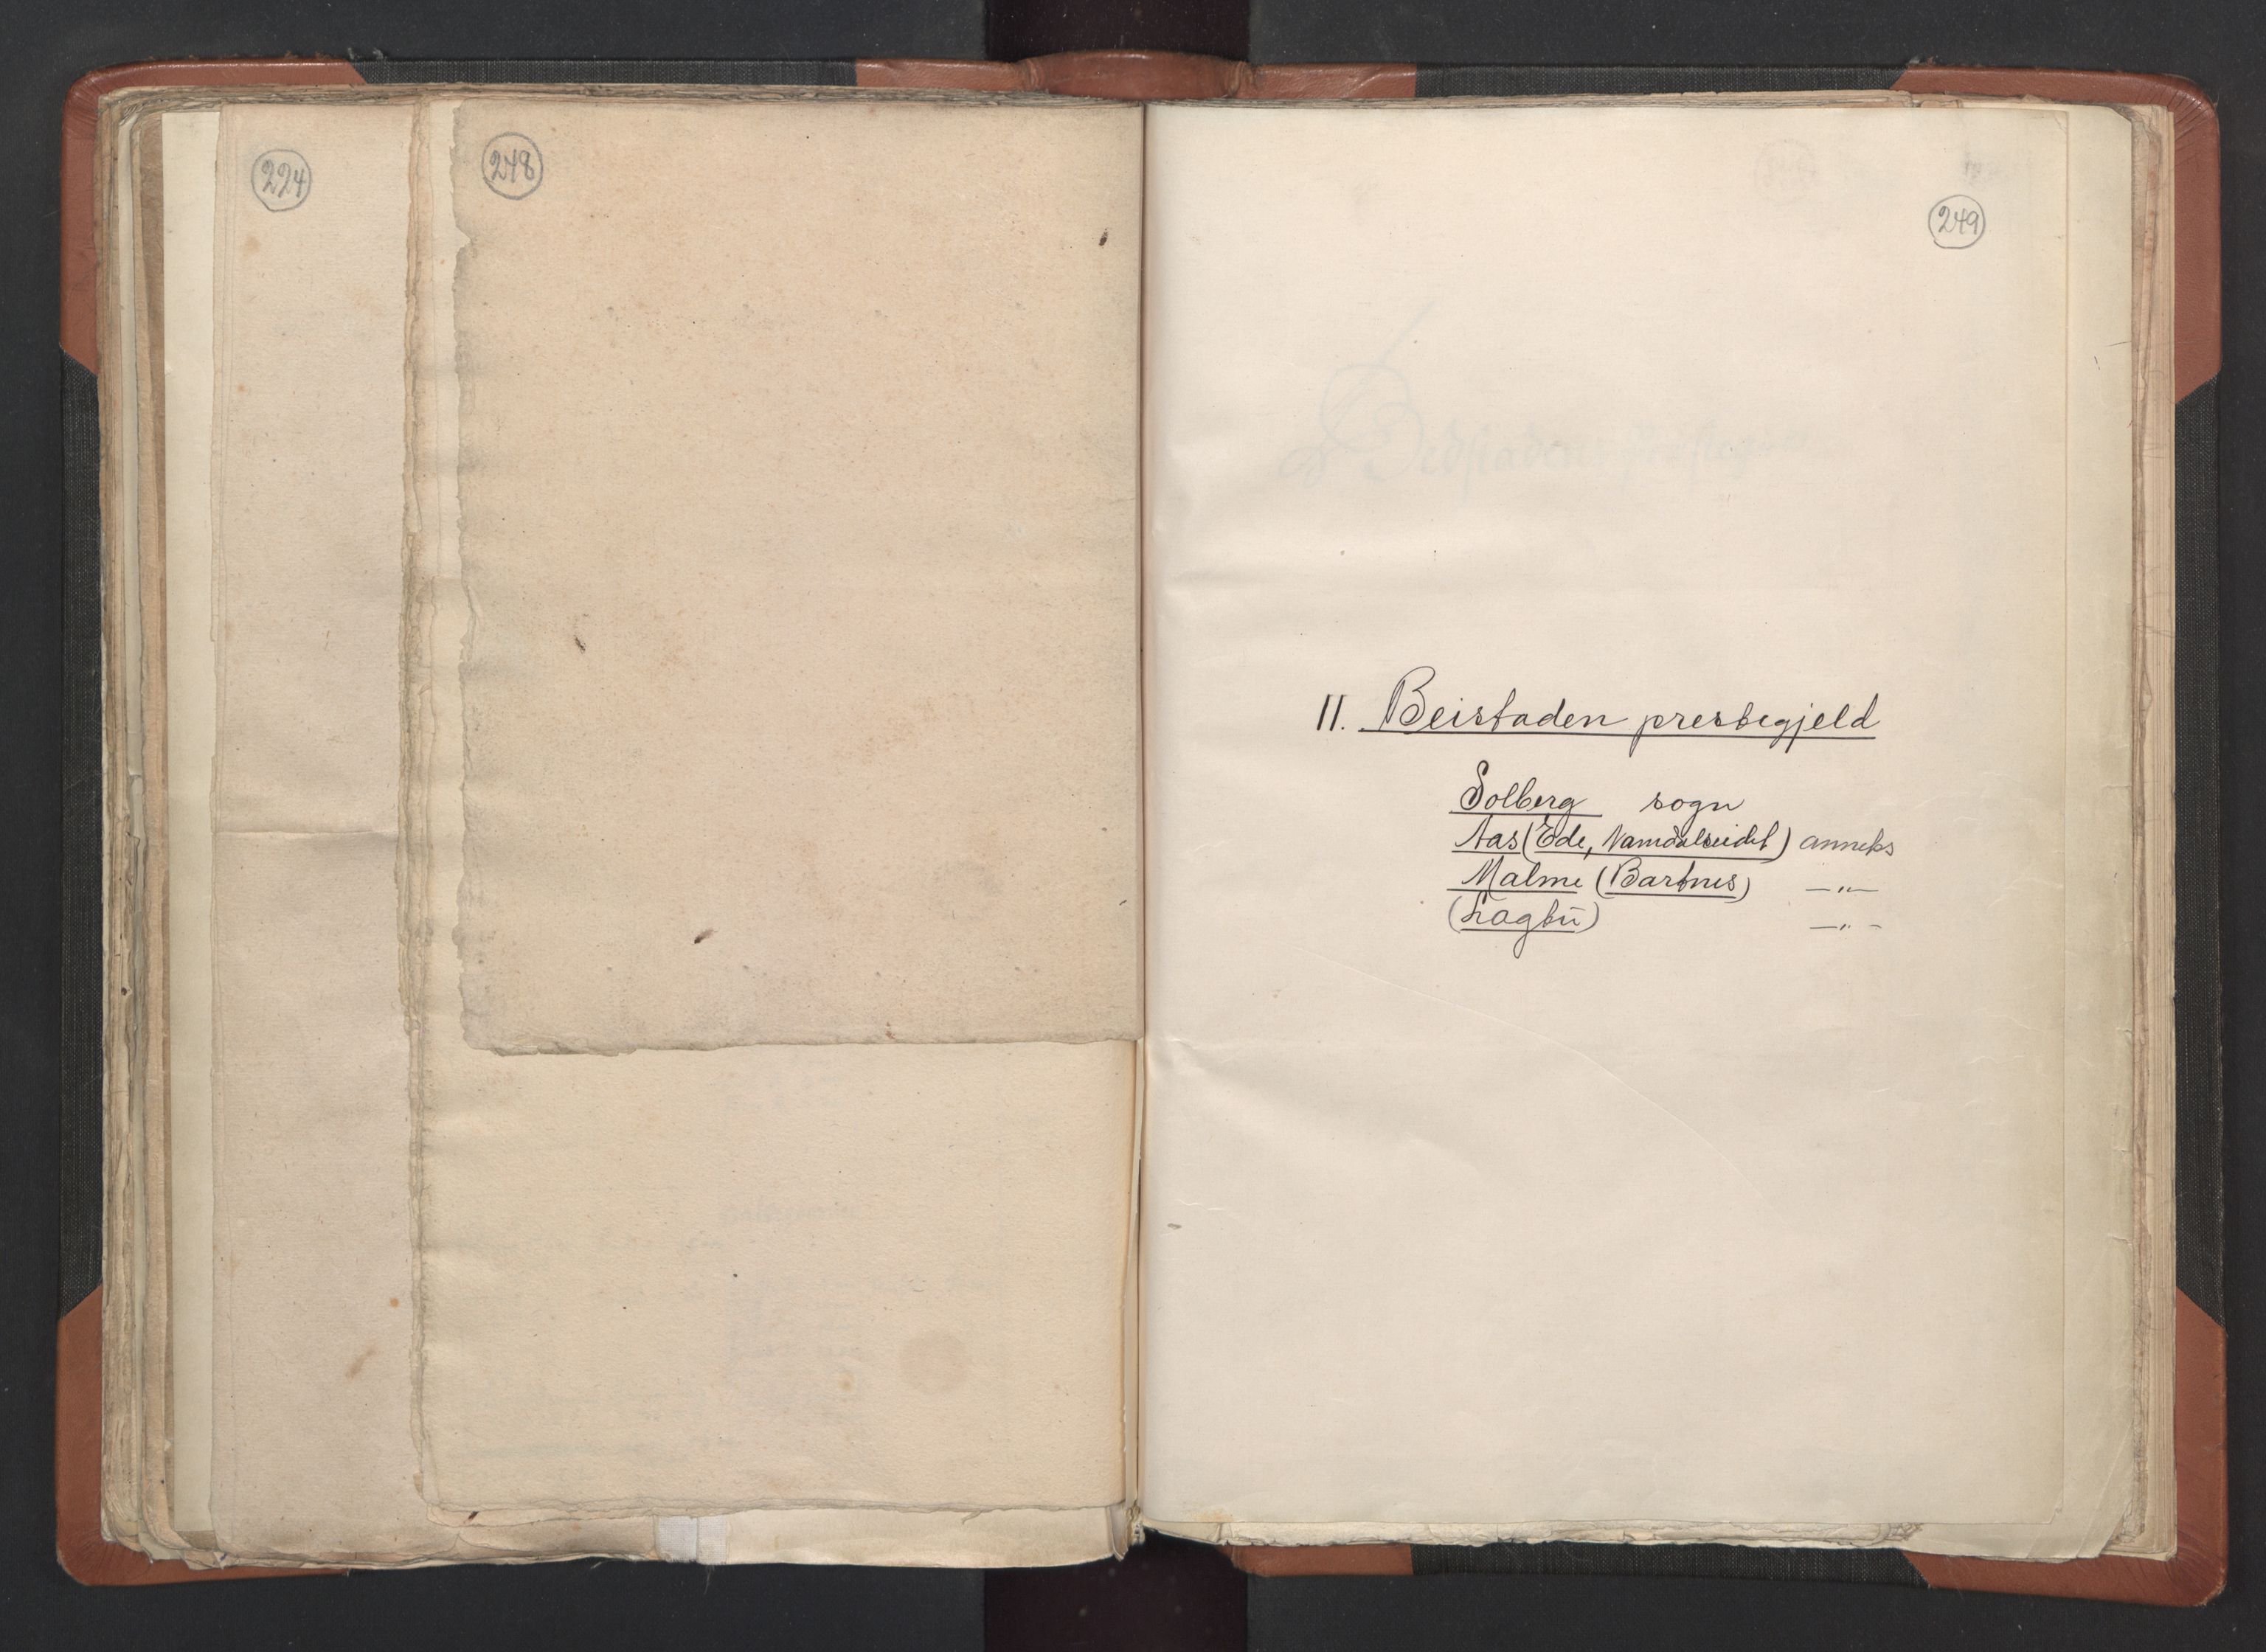 224
248
249
11. Beistaden prestegjeld
Solberg sogn
Aas (Ede, Namdalseidet) anneks
Malme (Bartnes) —"—
(Lagtu) —"—